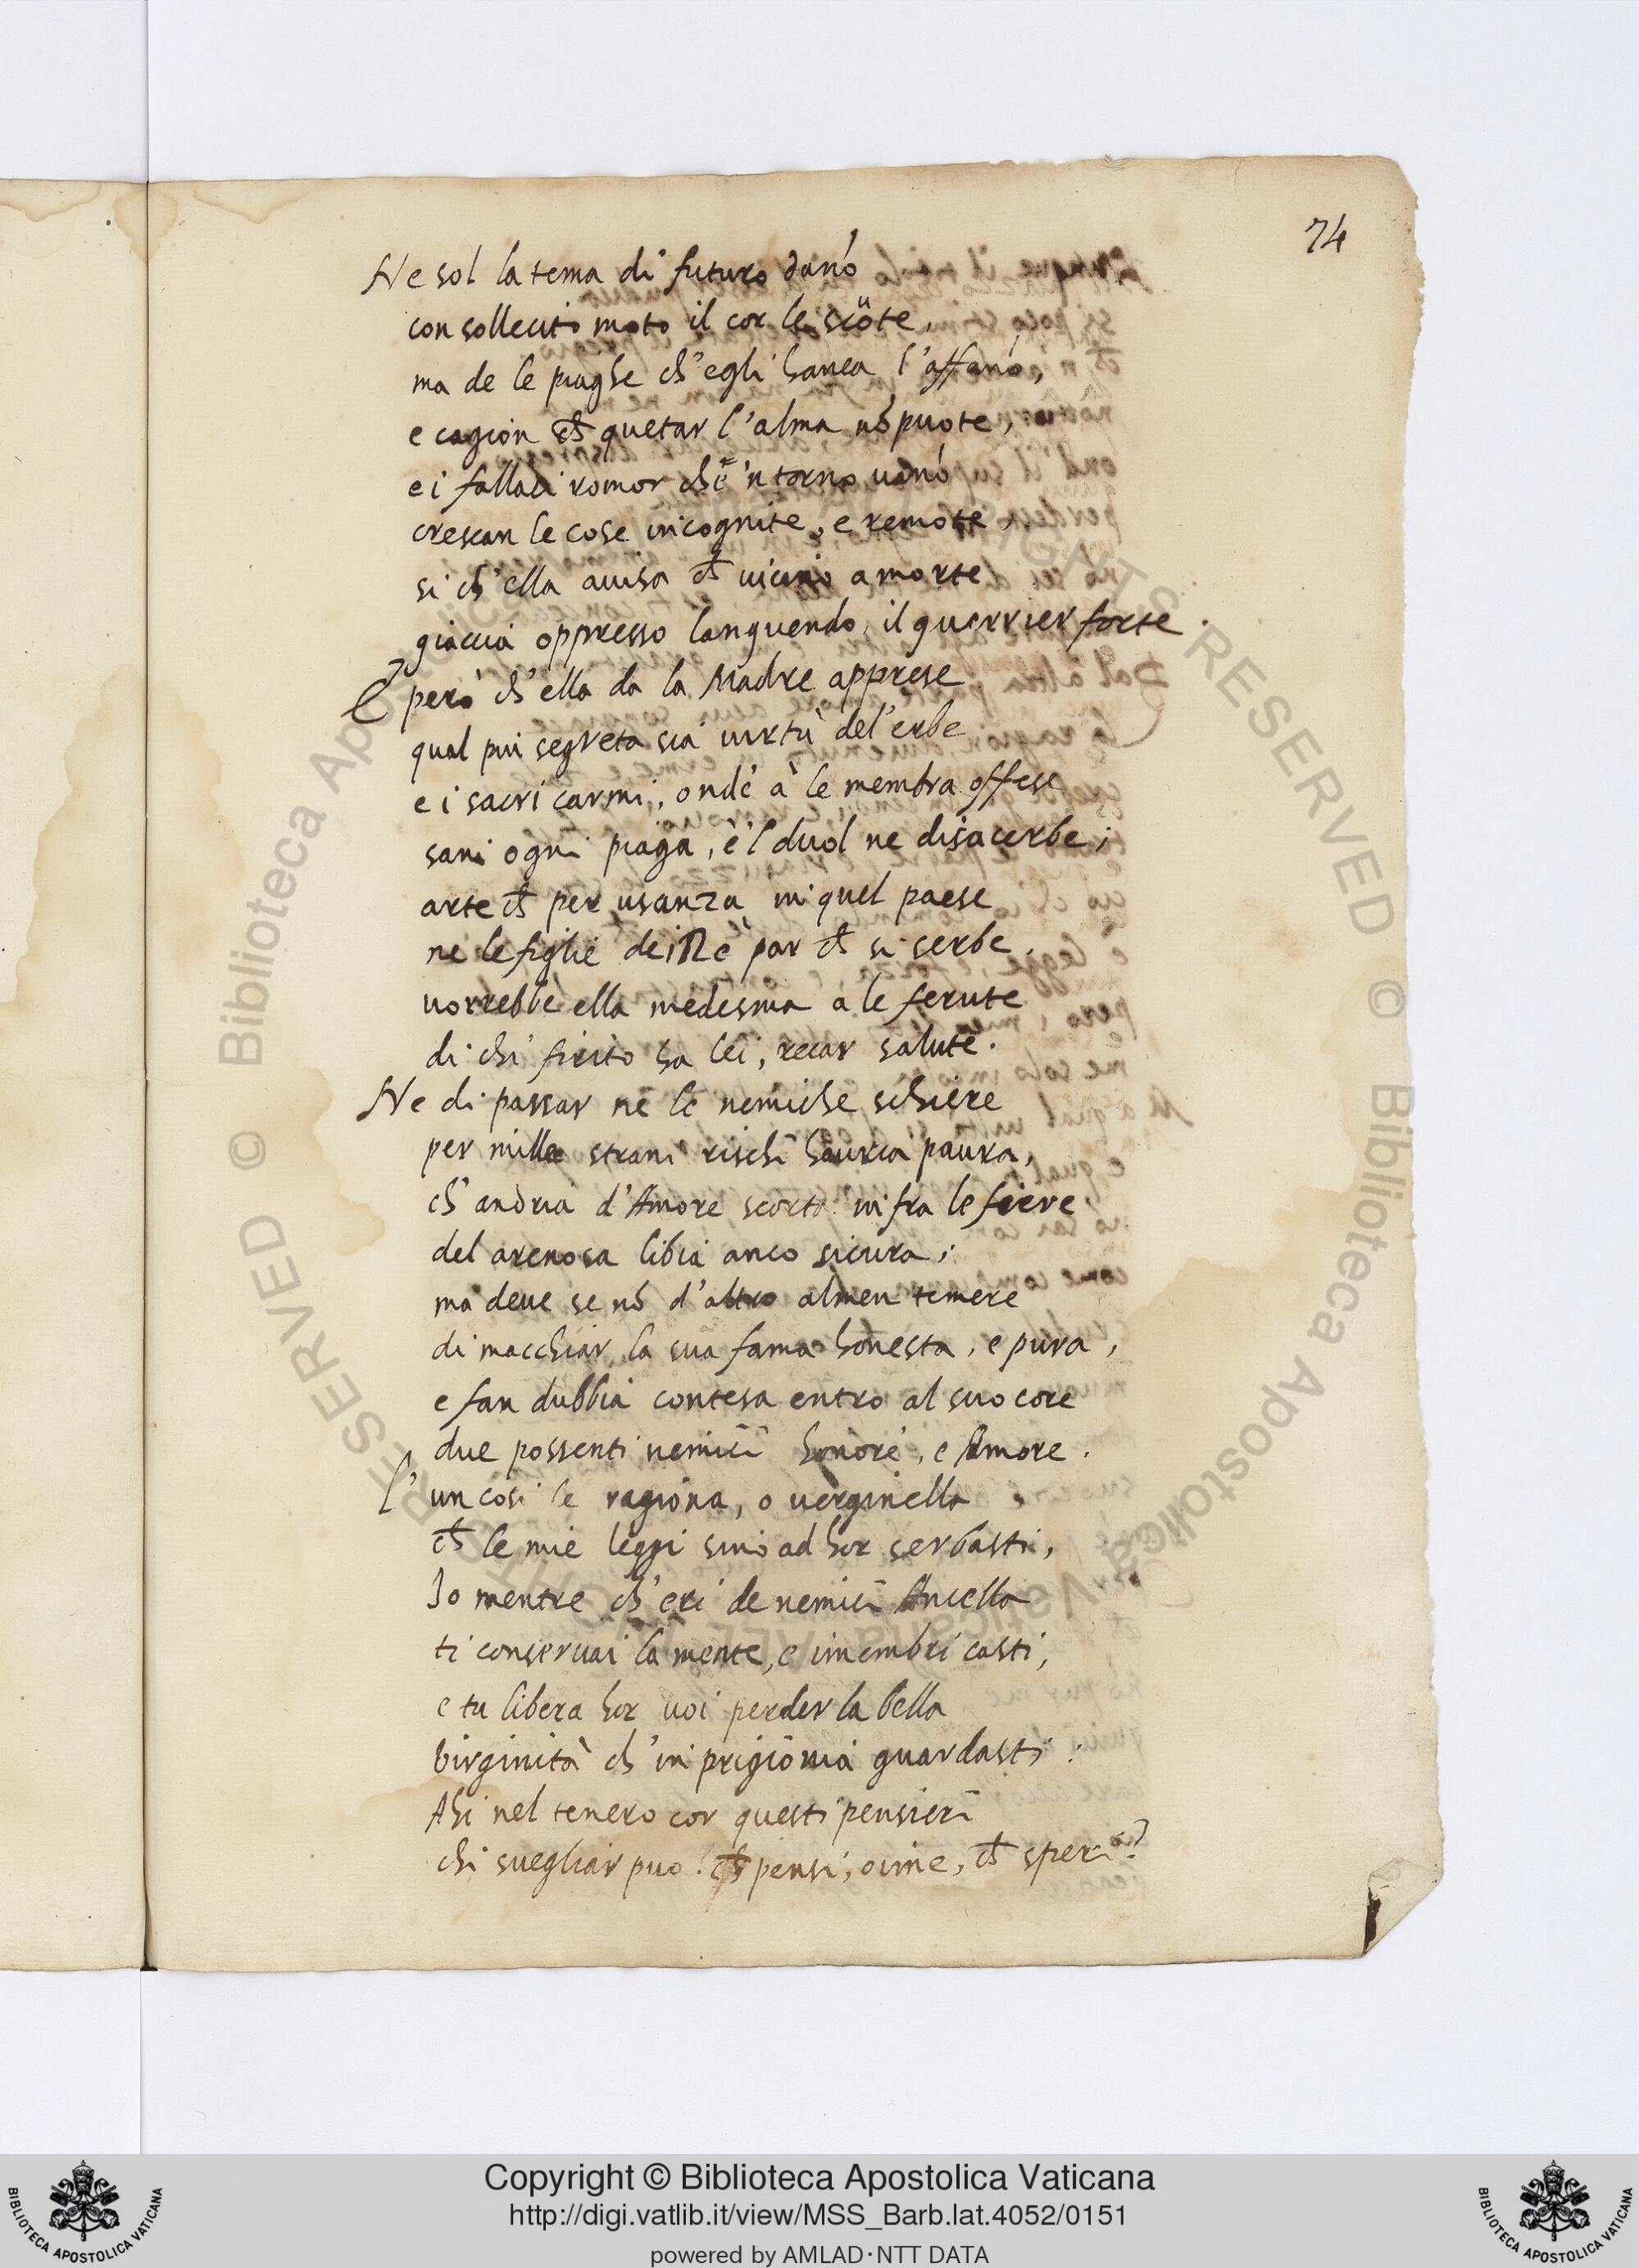 74
Ne sol la tema di futuro dan̄o
con sollecito moto il cor le scöte,
ma de le piaghe ch'egli havea l'affan̄o,
e cagion ch̄ quetar l'alma nō puote,
e i fallaci romor ch'e 'ntorno van̄o
crescan le cose incognite, e remote,
si ch'ella avisa ch̄ vicino a morte
giaccia oppresso languendo, il guerrier forte.
E però ch'ella da la Madre apprese
qual piu segreta sia virtù del'erbe
e i sacri carmi, onde à le membra offese
sani ogni piaga, e'l duol ne disacerbe;
arte ch̄ per usanza in quel paese
ne le figlie dei Re par ch̄ si serbe.
vorrebbe ella medesma a le ferute
di chi firito ha lei, recar salute.
Ne di passar ne le nemiche schiere
per mille strani rischi havria paura,
ch'andria d'Amore scorta infra le fiere
del arenosa libia anco sicura;
ma deve se nō d'altro almen temere
di macchiar la sua fama honesta, e pura,
e fan dubbia contesa entro al suo core
due possenti nemici honore, e Amore.
l'un cosi le ragiona, o verginella
ch̄ le mie leggi sino ad hor serbasti,
Io mentre ch'eri de nemici Ancella
ti conservai la mente, e i membri casti,
e tu libera hor voi perder la bella
virginità ch'in prigionia guardasti:
Ahi nel tenero cor questi pensieri
chi svegliar puo? ch̄ pensi, oime, ch̄ speri?
RIGHTS RESERVED © Biblioteca Apostolica Vaticana
Copyright © Biblioteca Apostolica Vaticana
http://digi.vatlib.it/view/MSS_Barb.lat.4052/0151
powered by AMLAD·NTT DATA
BIBLIOTECA APOSTOLICA VATICANA
BIBLIOTECA APOSTOLICA VATICANA